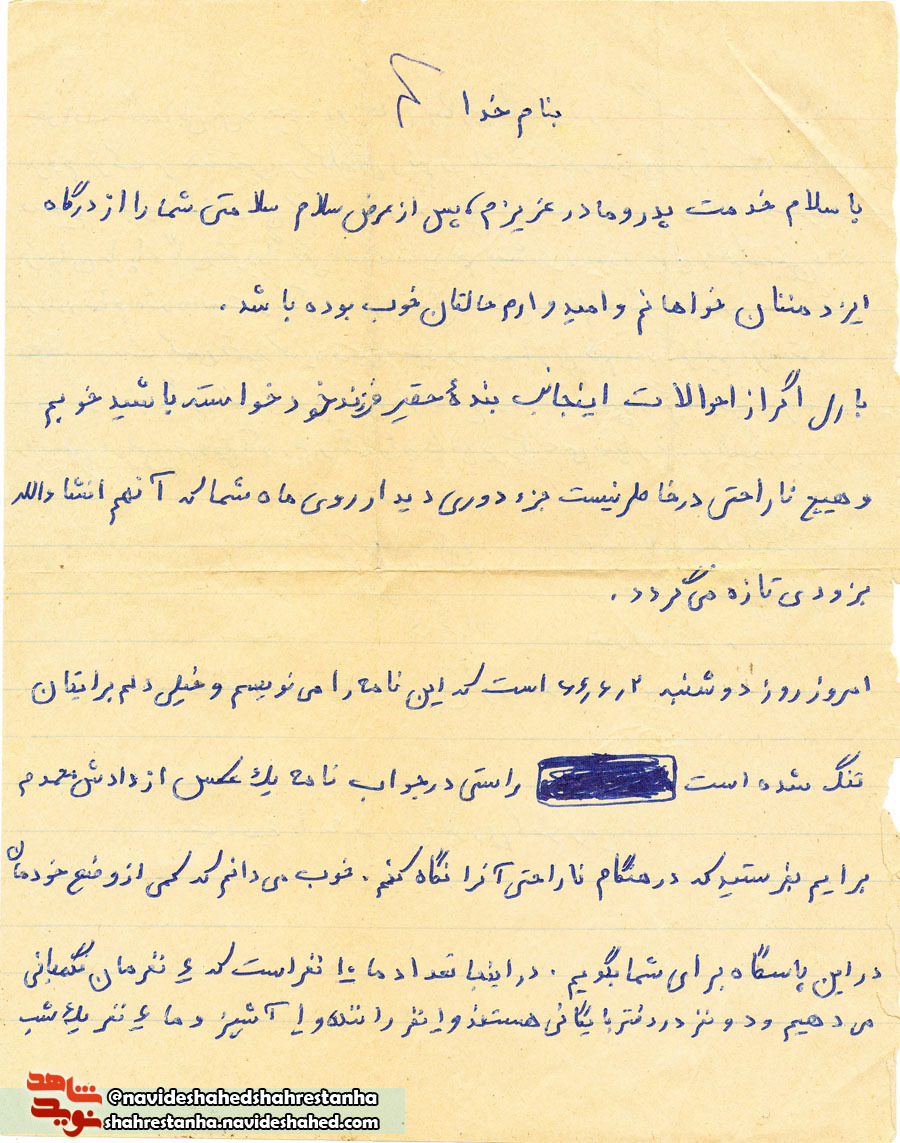 بنام خدا
با سلام خدمت پدر و مادر عزیزم، پس از عرض سلام سلامتی شما را از درگاه
ایزد منان خواهانم و امیدوارم حالتان خوب بوده باشد.
باری اگر از احوالات اینجانب بندهٔ حقیر فرزند خود خواسته باشید خوبم
و هیچ ناراحتی در خاطر نیست جزء دوری دیدار روی ماه شما که آنهم انشاءالله
بزودی تازه می‌گردد.
امروز روز دوشنبه ۶۴٫۶٫۲ است که این نامه را می‌نویسم و خیلی دلم برایتان
تنگ شده است راستی در جواب نامه یک عکس از داداش محمدم
برایم بفرستید که در هنگام ناراحتی آنرا نگاه کنم. خوب می‌دانم که کمی از وضع خودمان
در این پاسگاه برای شما بگویم. در اینجا تعداد ما ۱۰ نفر است که ۶ نفرمان نگهبانی
می‌دهیم و دو نفر در دفتر بایگانی هستند و ۱ نفر راننده و ۱ آشپز و ما ۶ نفر یک شب
شاهد
نوید
@navideshahedshahrestanha
shahrestanha.navideshahed.com